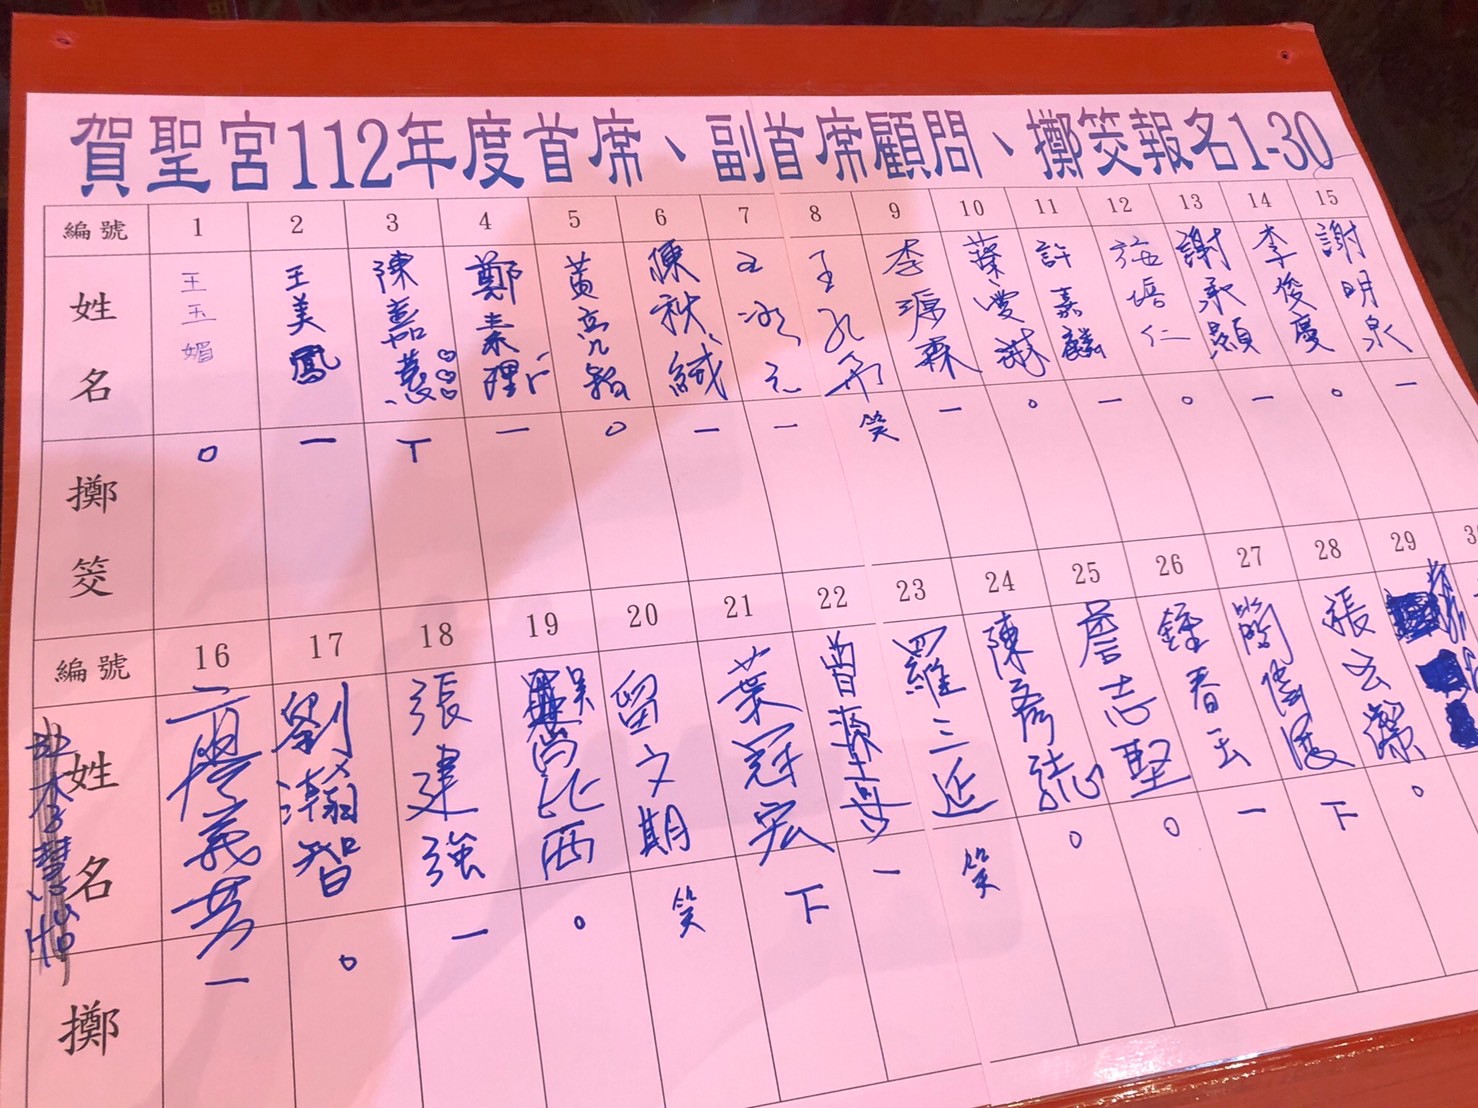 賀聖宮112年度首席、副首席顧問、擲筊報名1-30
編號 1 2 3 4 5 6 7 8 9 10 11 12 13 14 15
姓名 王玉媚 王美鳳 陳嘉慧 鄭素 黃亮銘 陳秋 王 元 王 李源森 葉 許嘉麟 施培仁 謝承顯 李俊慶 謝明泉
擲筊 ○ 一 丅 一 ○ 一 一 笑 一 ○ 一 ○ 一 ○ 一
編號 16 17 18 19 20 21 22 23 24 25 26 27 28 29
姓名 廖義芳 劉瀚智 張建強 吳尚西 留文期 葉冠宏 曾 羅三延 陳彥 詹志堅 鍾春 簡 張 潔
擲 一 ○ 一 ○ 笑 下 一 笑 ○ ○ 一 下 ○